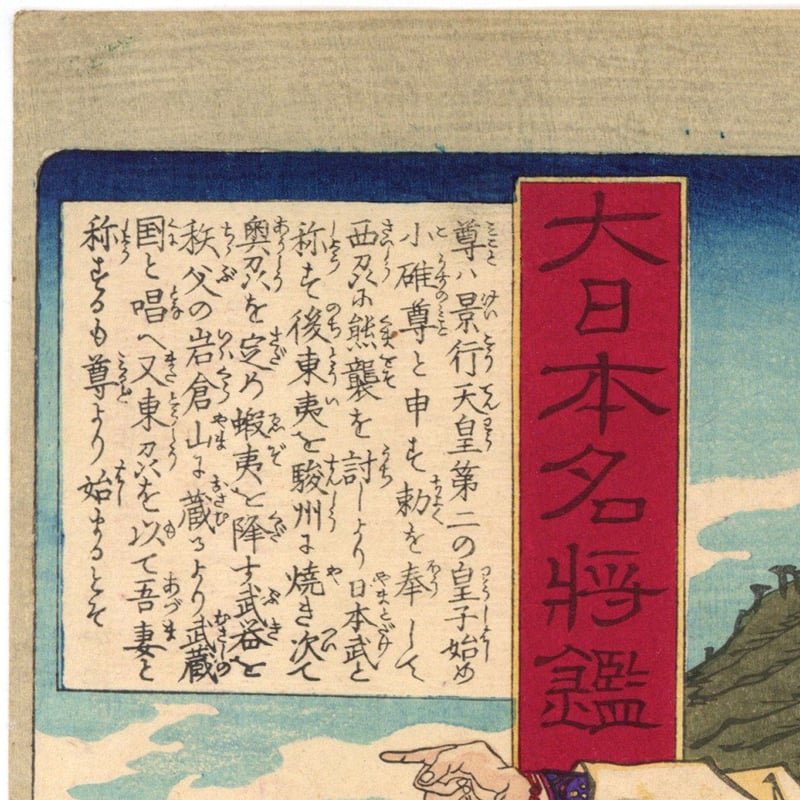 大日本名将鑑
尊ハ景行天皇第二の皇子始め
小碓尊と申す勅を奉して
西刕に熊襲を討しより日本武と
称す後東夷を駿州に焼き次て
奥刕を定め蝦夷を降す武器を
秩父の岩倉山に蔵るより武蔵
国と唱へ又東刕を以て吾妻と
称するも尊より始まるとぞ